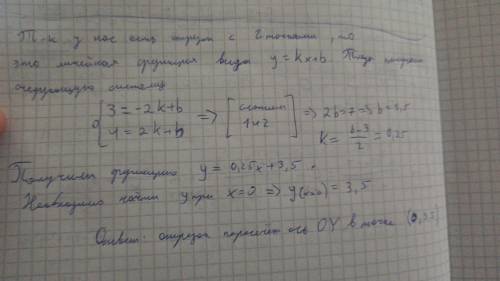 Т.к у нас есть отрезок с 2 точками, то
это линейная функция вида y = kx+b. Тогда
следующую систему
{ 3 = -2k+b
4 = 2k+b => [ сложим 1 и 2 ] => 2b=7 => b=3,5
k = (b-3)/2 = 0,25
Получили функцию y = 0,25x + 3,5.
Необходимо найти y при x=0 => y(x=0) = 3,5
Ответ: отрезок пересечёт ось OY в точке (0, 3,5)